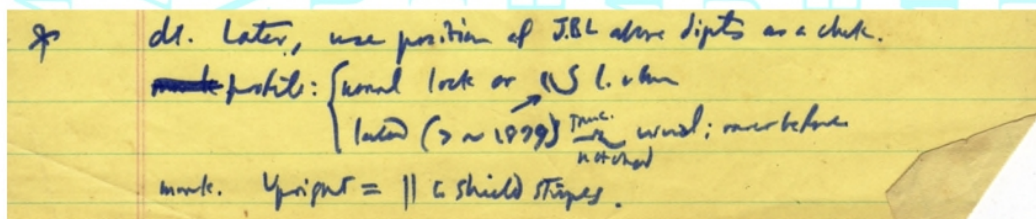 dl. Later, use position of J.B.L above digits as a check.
profile: normal lock or
later (> ~ 1879) trunc. usual; never before
notched
mark. Upright = || to shield stripes.